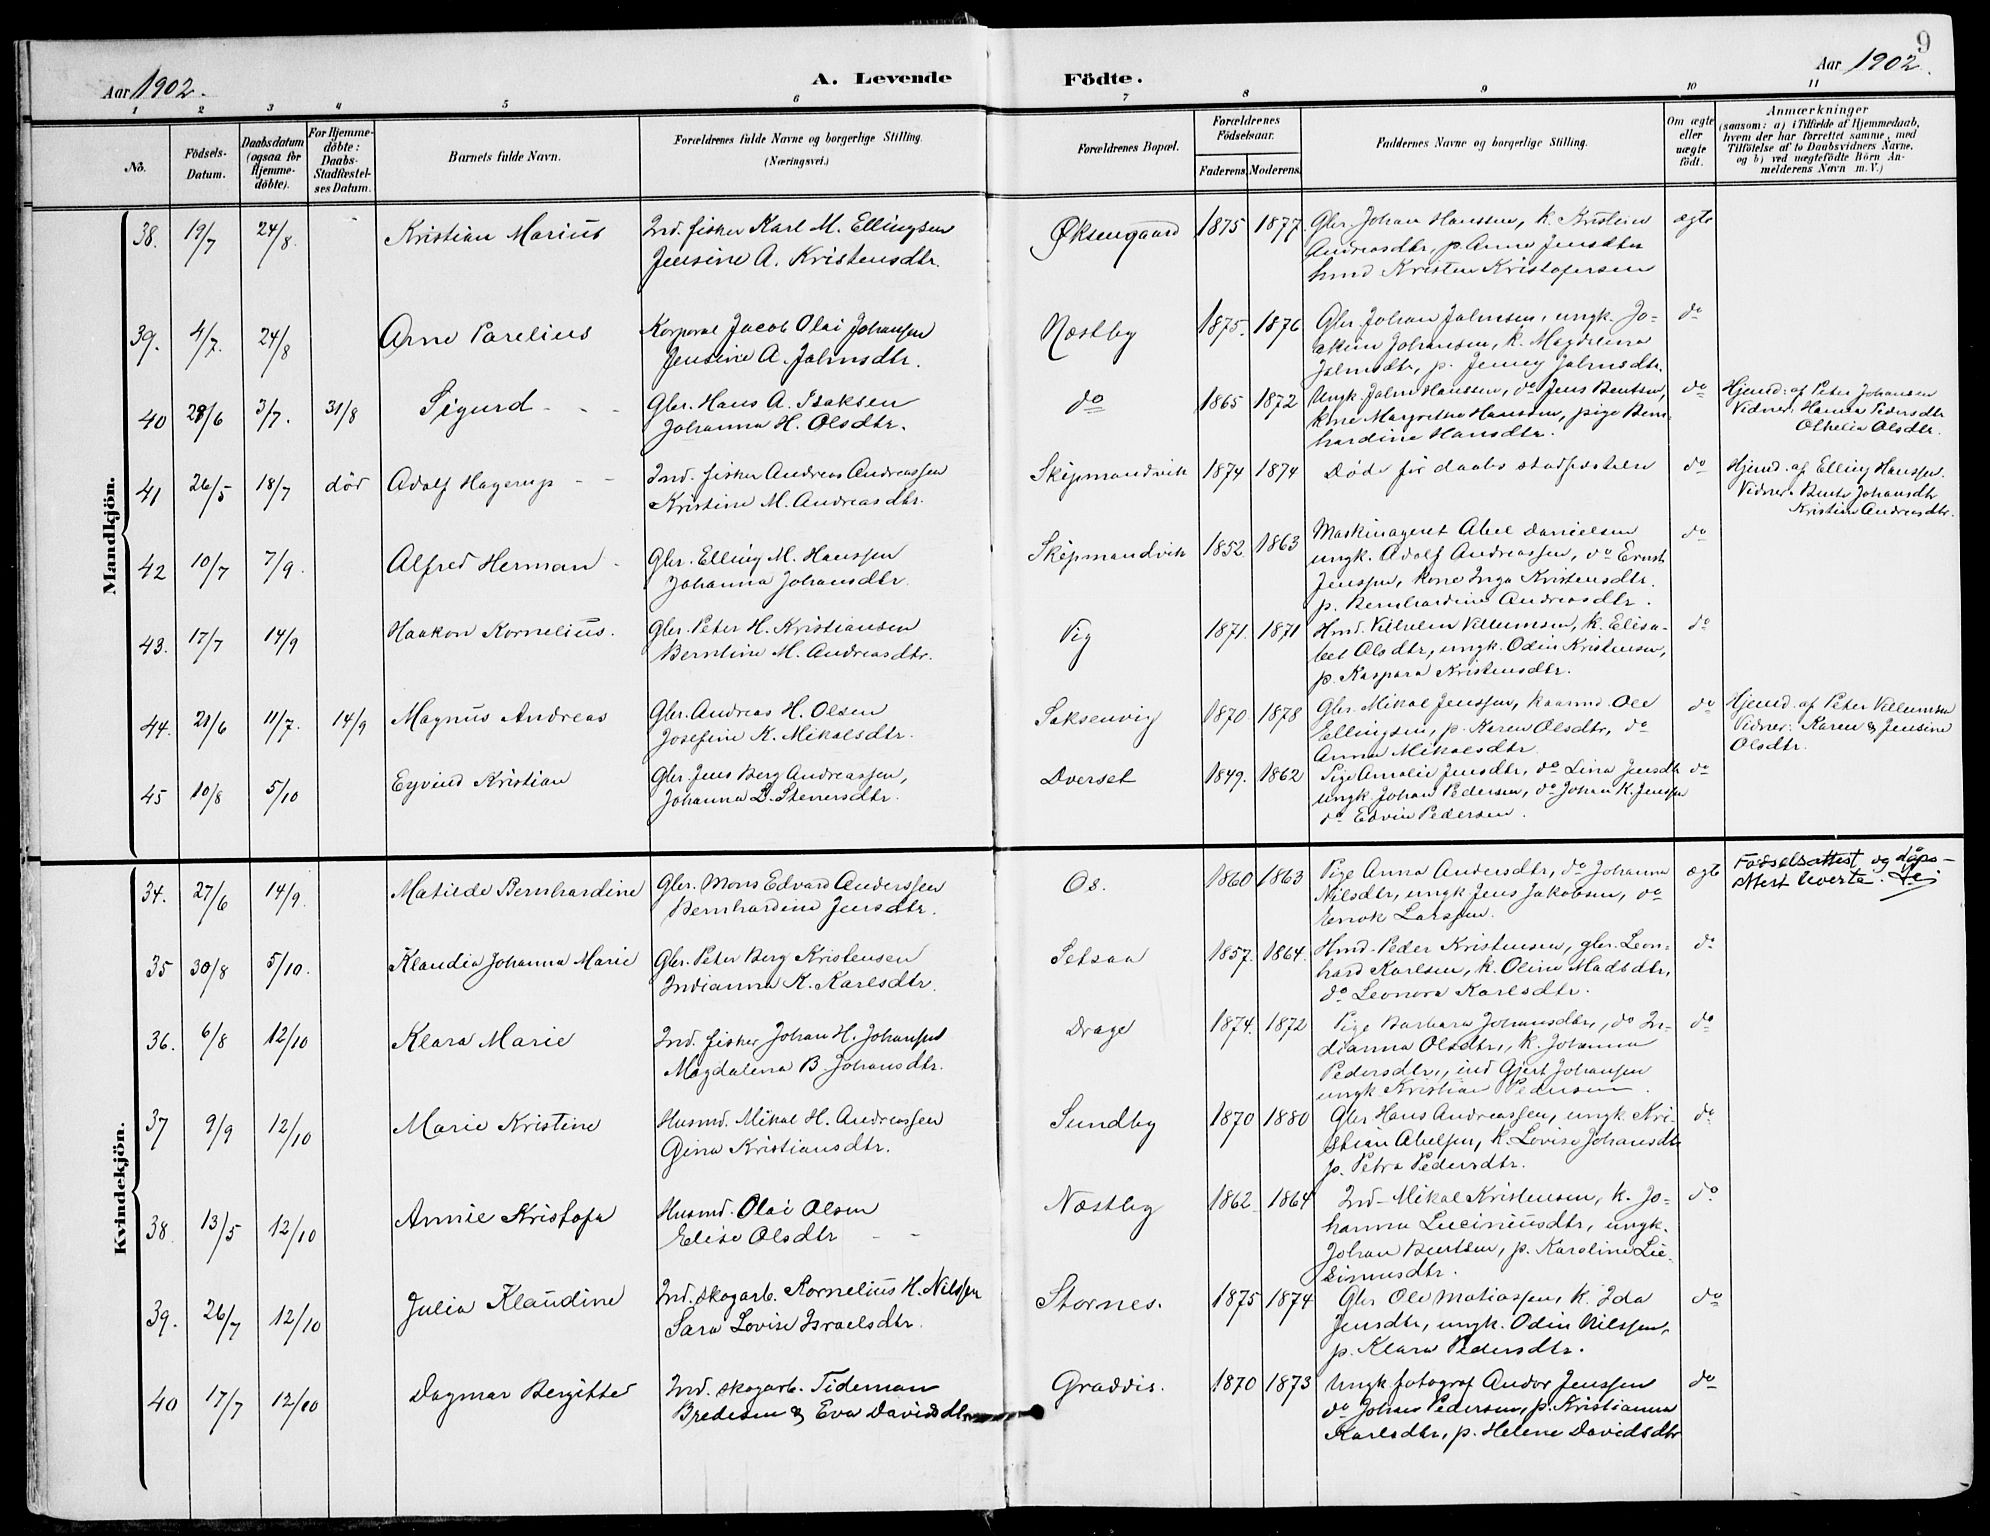 9
Aar 1902.
A. Levende Födte.
Aar 1902.
1 2 3 4 5 6 7 8 9 10 11
No.
Födsels-
Datum.
Daabsdatum
(ogsaa for
Hjemme-
döbte).
For Hjemme-
döbte:
Daabs-
Stadfæstel-
ses Datum.
Barnets fulde Navn.
Forældrenes fulde Navne og borgerlige Stilling.
(Næringsvei.)
Forældrenes Bopæl.
Forældrenes
Födselsaar.
Faderens. Moderens.
Faddernes Navne og borgerlige Stilling.
Om ægte
eller
uægte
födt.
Anmærkninger
(saasom: a) i Tilfælde af Hjemmedaab,
hvem der har forrettet samme, med
Tilföielse af to Daabsvidners Navne,
og b) ved uægtefödte Börn An-
melderens Navn m. V.)
Mandkjön.
38. 19/7 24/8. Kristian Marius
Ind. fisker Karl M. Ellingsen
Jensine A. Kristensdtr.
Øksengaard 1875 1877.
Gbr. Johan Hanssen, k. Kristine
Andreasdtr, p. Anna Jensdtr
hmd Kristen Kristofersen
ægte
39. 4/7. 24/8 Arne Parelius
Korporal Jacob Olai Johansen
Jensine A. Jahnsdtr.
Næstby 1875. 1876
Gbr. Johan Jahnsen, ungk. Jo-
akim Johansen, k. Magdalena
Jahnsdtr, p. Jenny Jahnsdtr.
do
40 28/6 3/7. 31/8 Sigurd - -
Gbr. Hans A. Isaksen
Johanna H. Olsdtr.
do 1865 1872
Ungk. Jahn Hanssen, do Jens Bentsen,
kone Margrethe Hansen, pige Bern-
hardine Hansdtr.
do
Hjemd. af Peter Johansen
Vidner: Hanna Pedersdtr
Othelia Olsdtr.
41 26/5 18/7 dör Adolf Hagerup - -
Ind. fisker Andreas Andreassen
Kristine M. Andreasdtr.
Skjpmandvik 1874 1874
Døde før daabs stadfæstelse
do
Hjemd. af Elling Hanssen.
Vidner. Berte Johansdtr
Kristine Andreasdtr.
42 10/7 7/9. Alfred Herman -
Gbr. Elling M. Hanssen
Johanna Johansdtr.
Skjpmandvik 1852 1863
Maskinagent Abel Danielsen
ungk. Adolf Andreassen, do Ernst
Jenssen, kone Inga Kristensdtr.
p. Bernhardine Andreasdtr.
do
43. 17/7 14/9 Haakon Kornelius.
Gbr. Peter H. Kristiansen
Berntine M. Andreasdtr.
Vig 1871. 1871
Hmd. Vilhelm Villumsen, k. Elisa-
bet Olsdtr, ungk. Odin Kristensen,
p. Kaspara Kristensdtr.
do
44. 21/6 11/7. 14/9 Magnus Andreas
Gbr. Andreas H. Olsen
Josefine K. Mikalsdtr.
Saksenvig 1870 1878
Gbr. Mikal Jenssen, kaarmd Ole
Ellingsen, p. Karen Olsdtr, do
Anna Mikalsdtr.
do
Hjemd. af Peter Villumsen
Vidner: Karen & Jensine
Olsdtr.
45 10/8 5/10 Eyvind Kristian
Gbr. Jens Berg Andreassen,
Johanna L. Stenersdtr.
Dverset 1849. 1862
Pige Amalie Jensdtr, do Lina Jensdtr
ungk Johan Pedersen, do Johan K. Jenssen
do Edvin Pedersen.
do
Kvindekjön.
34. 27/6 14/9. Matilde Bernhardine
Gbr. Mons Edvard Anderssen
Bernhardine Jensdtr.
Os. 1860 1863
Pige Anna Andersdtr, do Johanna
Nilsdtr, ungk Jens Jakobsen, do
Enok Larssen.
ægte
Fødselsattest og dåps-
attest leverte.
35 30/8 5/10. Klaudia Johanna Marie
Gbr. Peter Berg Kristensen
Indianna K. Karlsdtr.
Setsaa 1857. 1864.
Hmd. Peder Kristensen, gbr. Leon-
hard Karlsen, k. Oline Madsdtr,
do Leonora Karlsdtr.
do
36. 6/8 12/10 Klara Marie
Ind. fisker Johan H. Johansen
Magdalena B. Johansdtr.
Drage 1874. 1872
Pige Barbara Johansdtr, do In-
dianna Olsdtr, k. Johanna
Pedersdtr, ind Gjert Johansen
ungk Kristian Pedersen
do
37 9/9 12/10 Marie Kristine
Husmd. Mikal H. Andreassen
Gina Kristiansdtr.
Sundby 1870 1880
Gbr Hans Andreassen, ungk Kri-
stian Abelsen, k. Lovise Johansdtr
p. Petra Pedersdtr.
do
38 13/5 12/10 Annie Kristofa
Husmd. Olai Olsen
Elise Olsdtr - -
Næstby 1862 1864
Ind. Mikal Kristensen, k. Jo-
hanna Luciniusdtr, ungk.
Johan Bentsen, p. Karoline Lu-
siniusdtr.
do
39. 26/7 12/10 Julia Klaudine
Ind. skogarb. Kornelius H. Nilssen
Sara Lovise Israelsdtr.
Stornes. 1875 1874
Gbr Ole Matiassen, k. Ida
Jensdtr, ungk. Odin Nilssen,
p. Klara Pedersdtr.
do
40 17/7 12/10 Dagmar Bergitte
Ind. skogarb. Tideman
Bredesen & Eva Davidsdtr
Graddis. 1870 1873
Ungk fotograf Andor Jenssen
do Johan Pedersen, p. Kristianna
Karlsdtr, p. Helene Davidsdtr
do